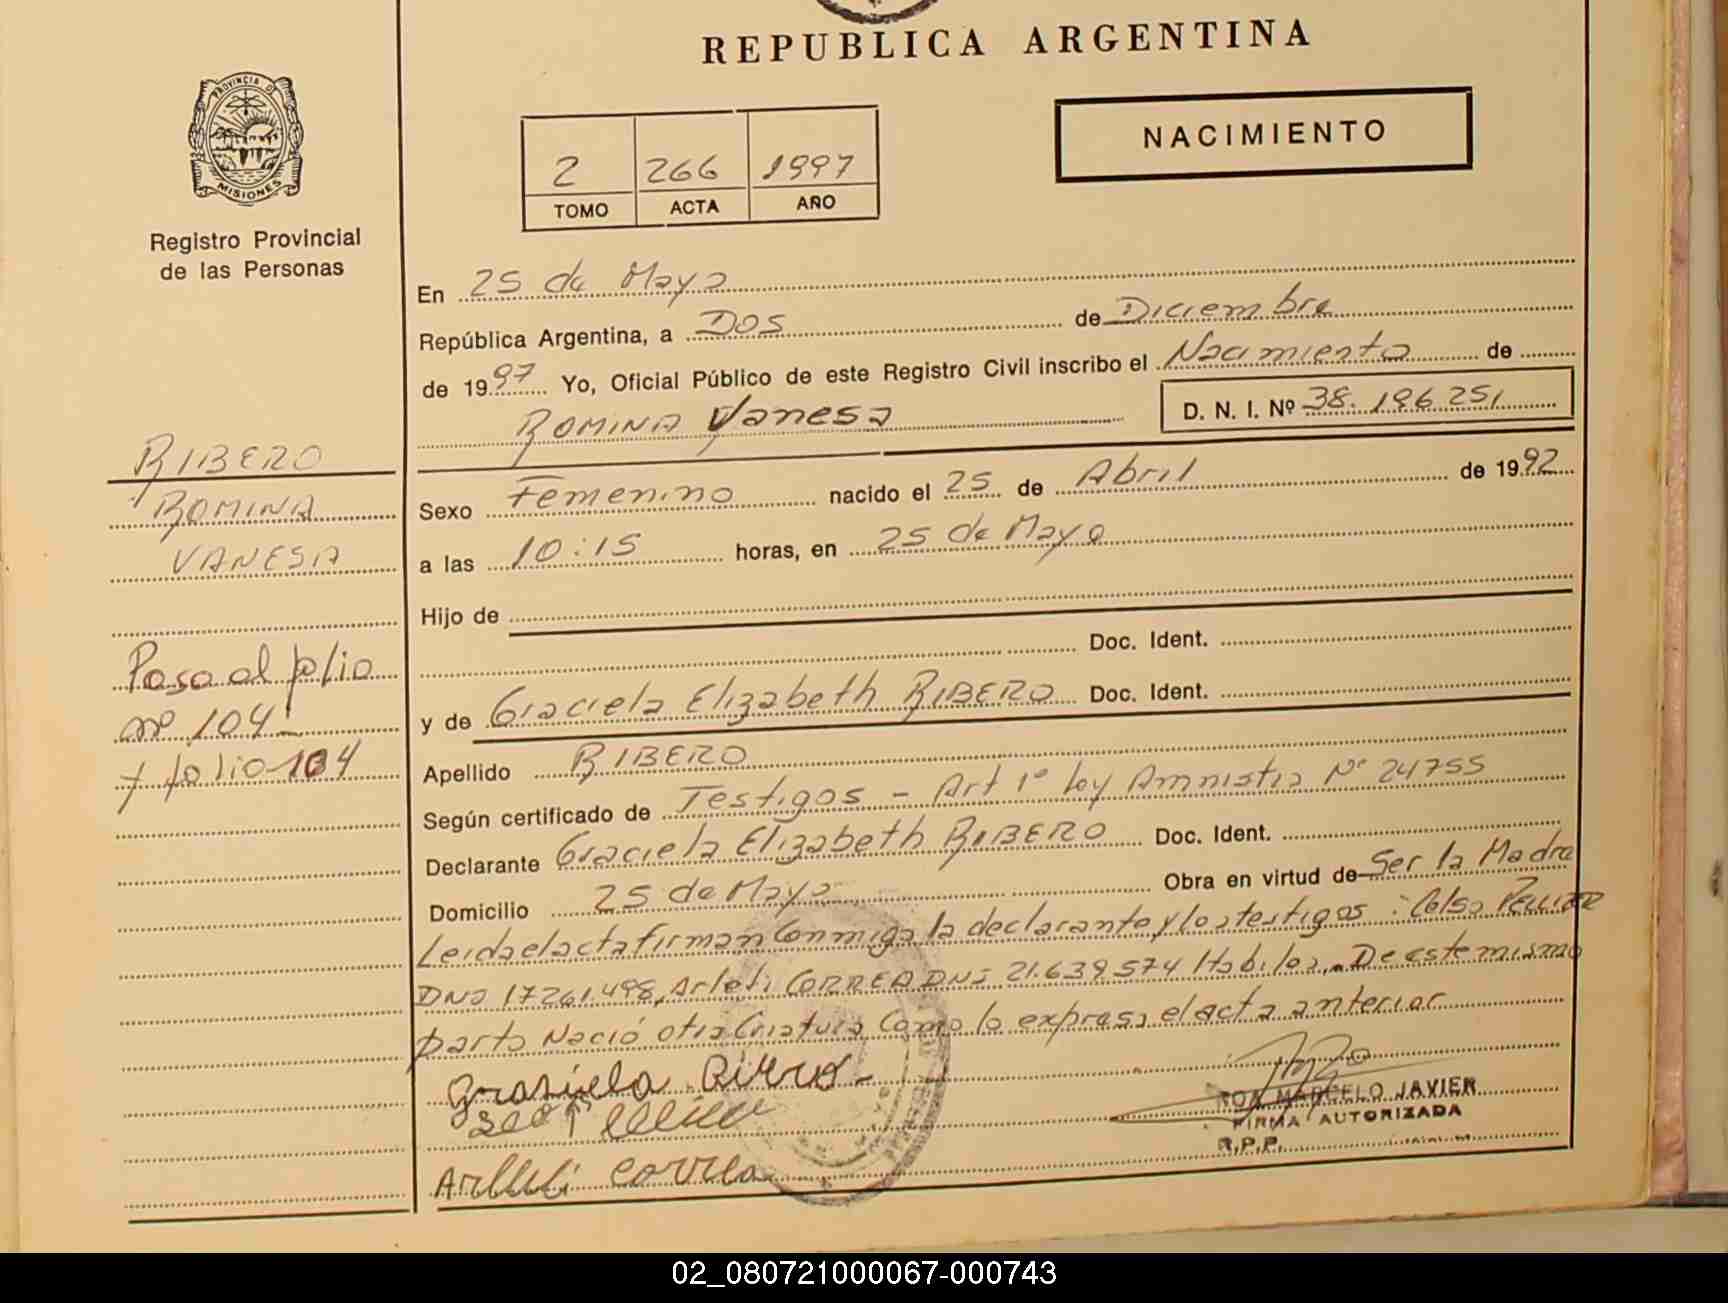 REPUBLICA ARGENTINA
PROVINCIA DE
MISIONES
Registro Provincial
de las Personas
NACIMIENTO
2 266 1997
TOMO ACTA AÑO
En 25 de Mayo
República Argentina, a Dos de Diciembre
de 1997 Yo, Oficial Público de este Registro Civil inscribo el Nacimiento de
Romina Vanesa D. N. I. Nº 38.196.251
RIBERO
ROMINA
VANESA
Pasa al folio
nº 104
folio 104
Sexo Femenino nacido el 25 de Abril de 1992
a las 10:15 horas, en 25 de Mayo
Hijo de
Doc. Ident.
y de Graciela Elizabeth RIBERO Doc. Ident.
Apellido RIBERO
Según certificado de Testigos - Art 1º Ley Amnistia Nº 24755
Declarante Graciela Elizabeth RIBERO Doc. Ident.
Domicilio 25 de Mayo Obra en virtud de Ser la Madre
Leida el acta firman conmigo la declarante y los testigos : Celso
DNI 17261.498, Arleti CORREA DNI 21.639.574 Habiles. De este mismo
parto Nació otra Criatura Como lo expresa el acta anterior
Arlleti correa
MARCELO JAVIER
FIRMA AUTORIZADA
R.P.P.
02_080721000067-000743